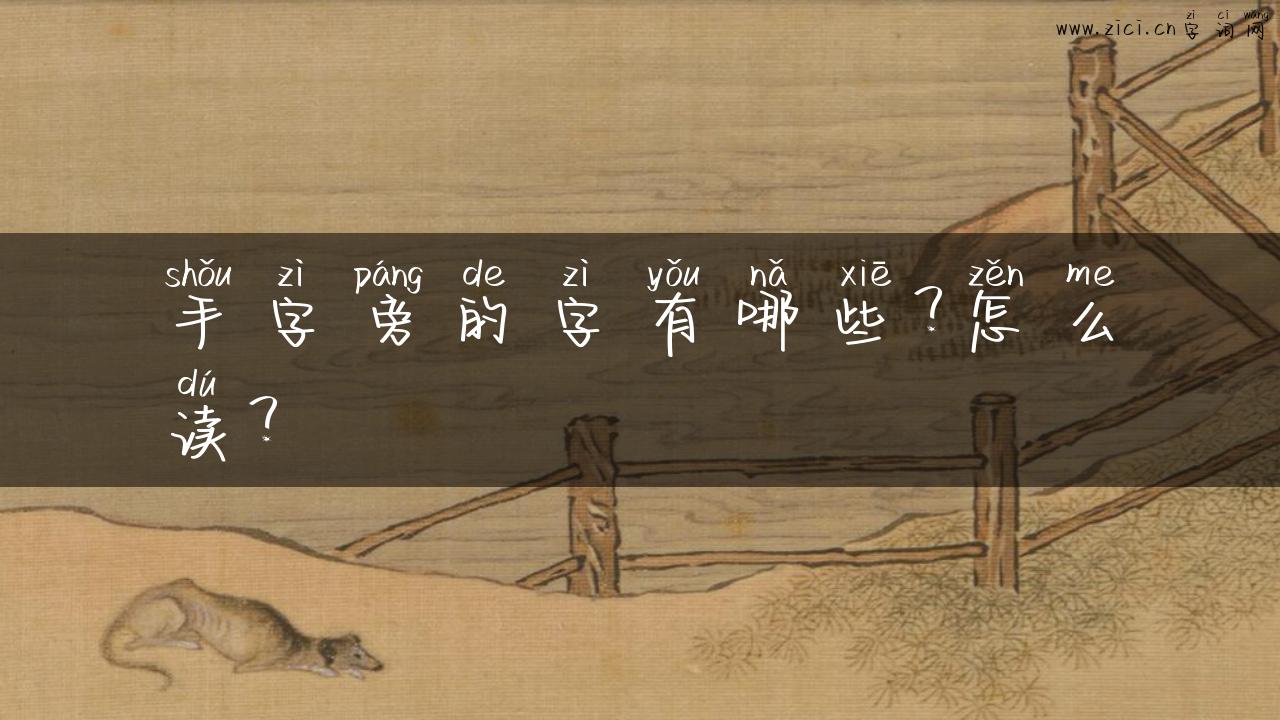 zì cí wǎng
www.zici.cn字词网
shǒu zì páng de zì yǒu nǎ xiē zěn me
手字旁的字有哪些？怎么
dú
读？